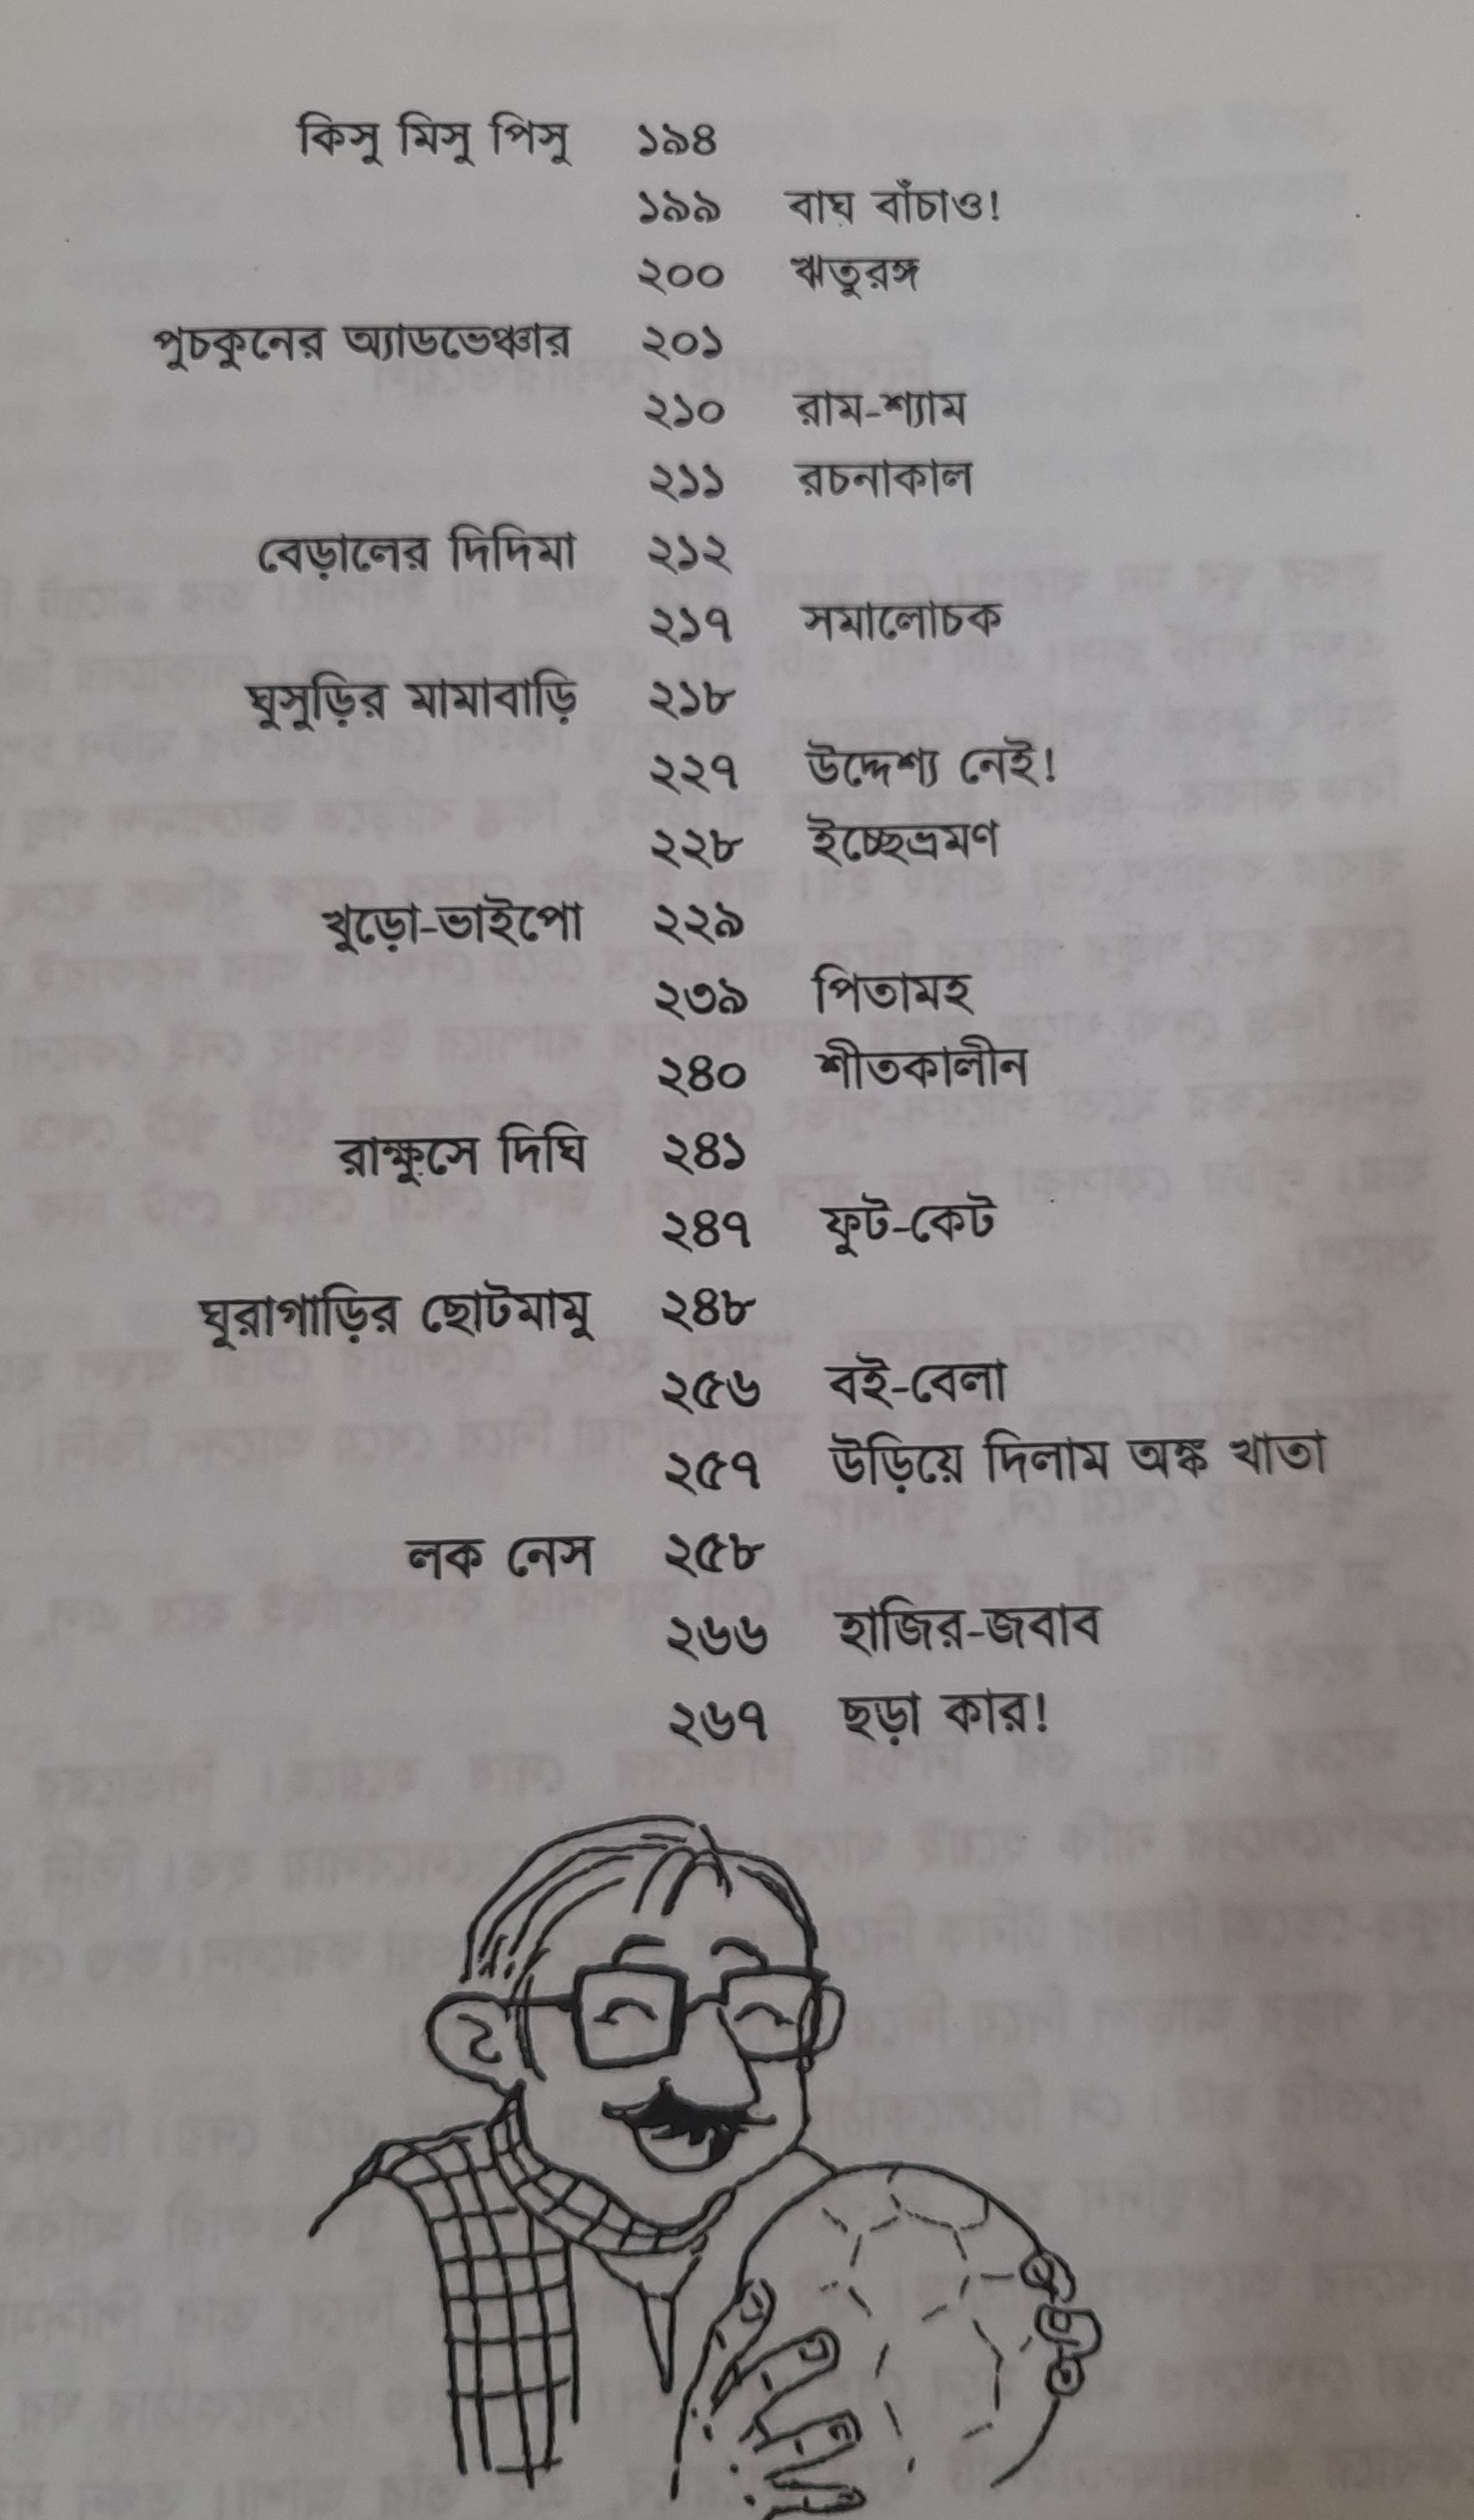 কিসু মিসু পিসু ১৯৪
১৯৯ বাঘ বাঁচাও!
২০০ ঋতুরঙ্গ
পুচকুনের অ্যাডভেঞ্চার ২০১
২১০ রাম-শ্যাম
২১১ রচনাকাল
বেড়ালের দিদিমা ২১২
২১৭ সমালোচক
ঘুসুড়ির মামাবাড়ি ২১৮
২২৭ উদ্দেশ্য নেই!
২২৮ ইচ্ছেভ্রমণ
খুড়ো-ভাইপো ২২৯
২৩৯ পিতামহ
২৪০ শীতকালীন
রাক্ষুসে দিঘি ২৪১
২৪৭ ফুট-কেট
ঘুরাগাড়ির ছোটমামু ২৪৮
২৫৬ বই-বেলা
২৫৭ উড়িয়ে দিলাম অঙ্ক খাতা
লক নেস ২৫৮
২৬৬ হাজির-জবাব
২৬৭ ছড়া কার!